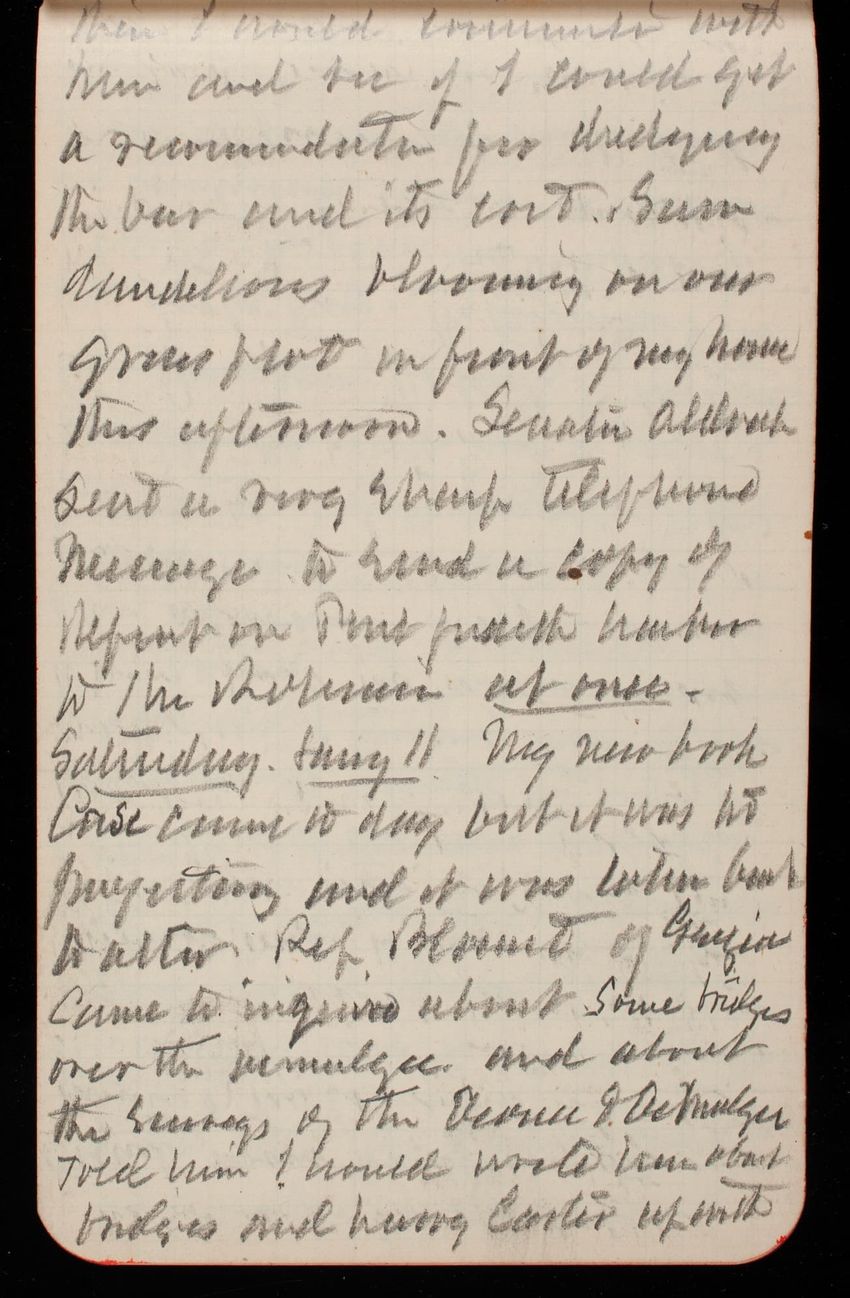 then I would communicate with
him and see if I could get
a recommendation for dredging
the bar and its cost. Saw
dandelions blooming on our
grass plot in front of my house
this afternoon. Senator Aldrich
sent a very sharp telephone
message to send a copy of
Report on Point Judith harbor
to the at once.
Saturday. Jany 11 My new book
Case came to day but it was too
projecting and it was taken back
to alter. Rep. Blount of Georgia
Came to inquire about some bridges
over the Ocmulgee and about
the Surveys of the Oconee & Ocmulgee
Told him I would write him about
bridges and hurry Carter up with